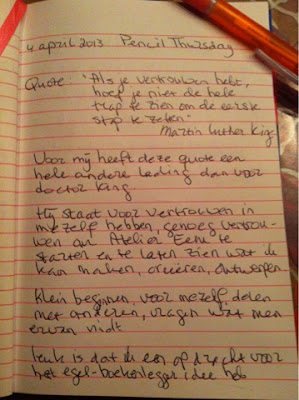 4 april 2013 Pencil Thursday
Quote: "Als je vertrouwen hebt,
hoef je niet de hele
trap te zien om de eerste
stap te zetten"
Martin Luther King
Voor mij heeft deze quote een
hele andere lading dan voor
doctor King.
Hij staat voor vertrouwen in
mezelf hebben, genoeg vertrou-
wen om Atelier Eene te
starten en te laten zien wat ik
kan maken, creëren, ontwerpen.
Klein beginnen, voor mezelf, delen
met anderen, vragen wat men
ervan vindt
Leuk is dat ik een opdracht voor
het egel-boekenlegger idee heb